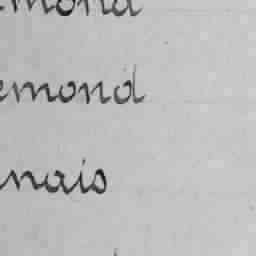 emond
emond
nais